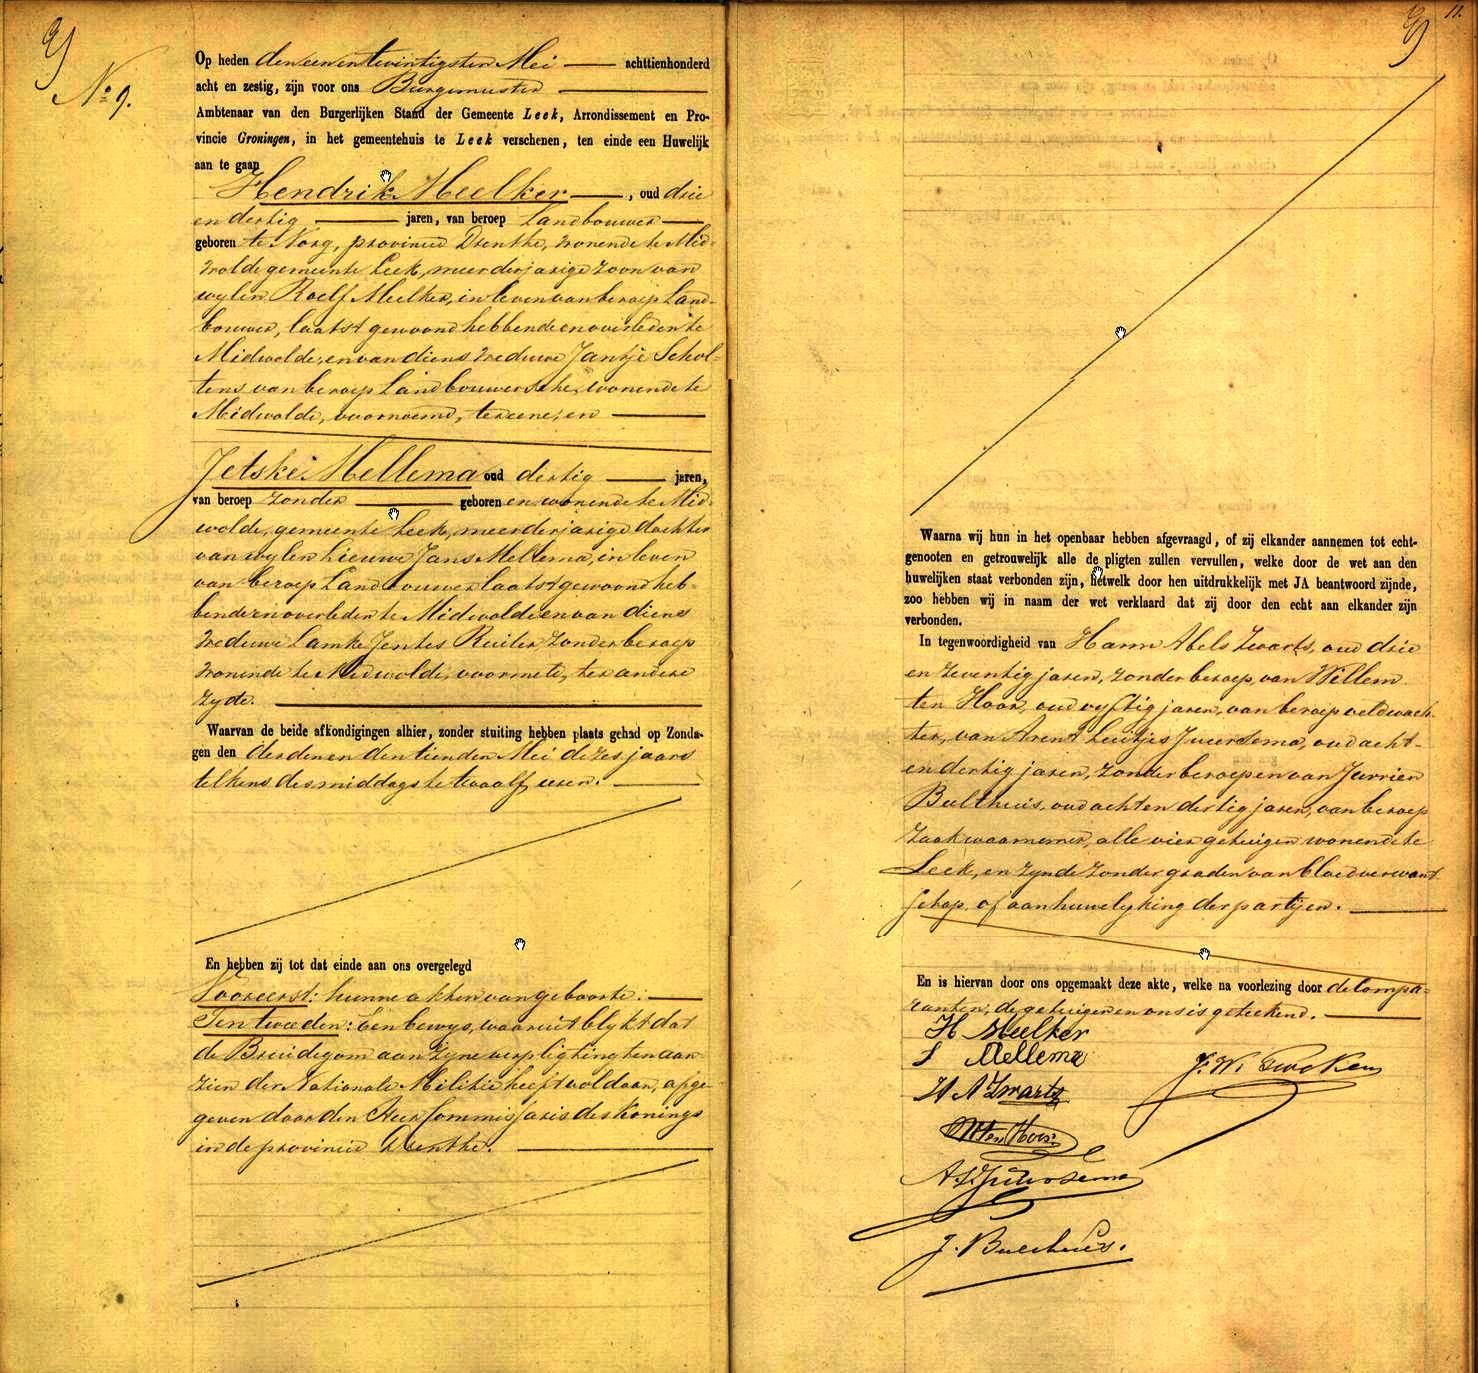 No 9.
Op heden den een en twintigsten Mei achttienhonderd
acht en zestig, zijn voor ons Burgemeester
Ambtenaar van den Burgerlijken Stand der Gemeente Leek, Arrondissement en Pro-
vincie Groningen, in het gemeentehuis te Leek verschenen, ten einde een Huwelijk
aan te gaan
Hendrik Meelker, oud drie
en dertig jaren, van beroep Landbouwer
geboren te Norg, provincie Drenthe, wonende te Mid-
wolde gemeente Leek, meerderjarige zoon van
wylen Roelf Meelker, in leven van beroep Land-
bouwer, laatst gewoond hebbende en overleden te
Midwolde, en van diens weduwe Jantje Schol-
tens van beroep Landbouwersche, wonende te
Midwolde, voornoemd, ter eene, en
Jetske Mellema oud dertig jaren,
van beroep zonder geboren en wonende te Mid-
wolde, gemeente Leek, meerderjarige dochter
van wylen Lieuwe Jans Mellema, in leven
van beroep Landbouwer laatst gewoond heb-
bende en overleden te Midwolde en van diens
weduwe Lamke Jentes Ruiter zonder beroep
wonende te Midwolde, voormeld, ter andere
zyde.
Waarvan de beide afkondigingen alhier, zonder stuiting hebben plaats gehad op Zonda-
gen den derden en den tienden Mei dezes jaars
telkens des middags te twaalf uren.
En hebben zij tot dat einde aan ons overgelegd
Vooreerst: hunne akten van geboorte:
Ten tweeden: Een bewys, waaruit blykt dat
de Bruidegom aan zyne verpligting ten aan-
zien der Nationale Militie heeft voldaan, afge-
geven door den Heer Commissaris des Konings
in de provincie Drenthe.
11.
Waarna wij hun in het openbaar hebben afgevraagd, of zij elkander aannemen tot echt-
genooten en getrouwelijk alle de pligten zullen vervullen, welke door de wet aan den
huwelijken staat verbonden zijn, hetwelk door hen uitdrukkelijk met JA beantwoord zijnde,
zoo hebben wij in naam der wet verklaard dat zij door den echt aan elkander zijn
verbonden.
In tegenwoordigheid van Harm Abels Zwarts, oud drie
en zeventig jaren, zonder beroep, van Willem
ten Hoor, oud vyftig jaren, van beroep veldwach-
ter, van Arend Luitjes Juursema, oud acht-
en dertig jaren, zonder beroep en van Jurrien
Bulthuis, oud acht en dertig jaren, van beroep
zaakwaarnemer, alle vier getuigen wonende te
Leek, en zynde zonder graden van bloedverwant-
schap of aanhuwelyking der partijen.
En is hiervan door ons opgemaakt deze akte, welke na voorlezing door de Compa-
ranten, de getuigen en ons is geteekend.
H Meelker
J Mellema
H A Zwarts
W ten Hoor
A. L. Juursema
J. Bulthuis.